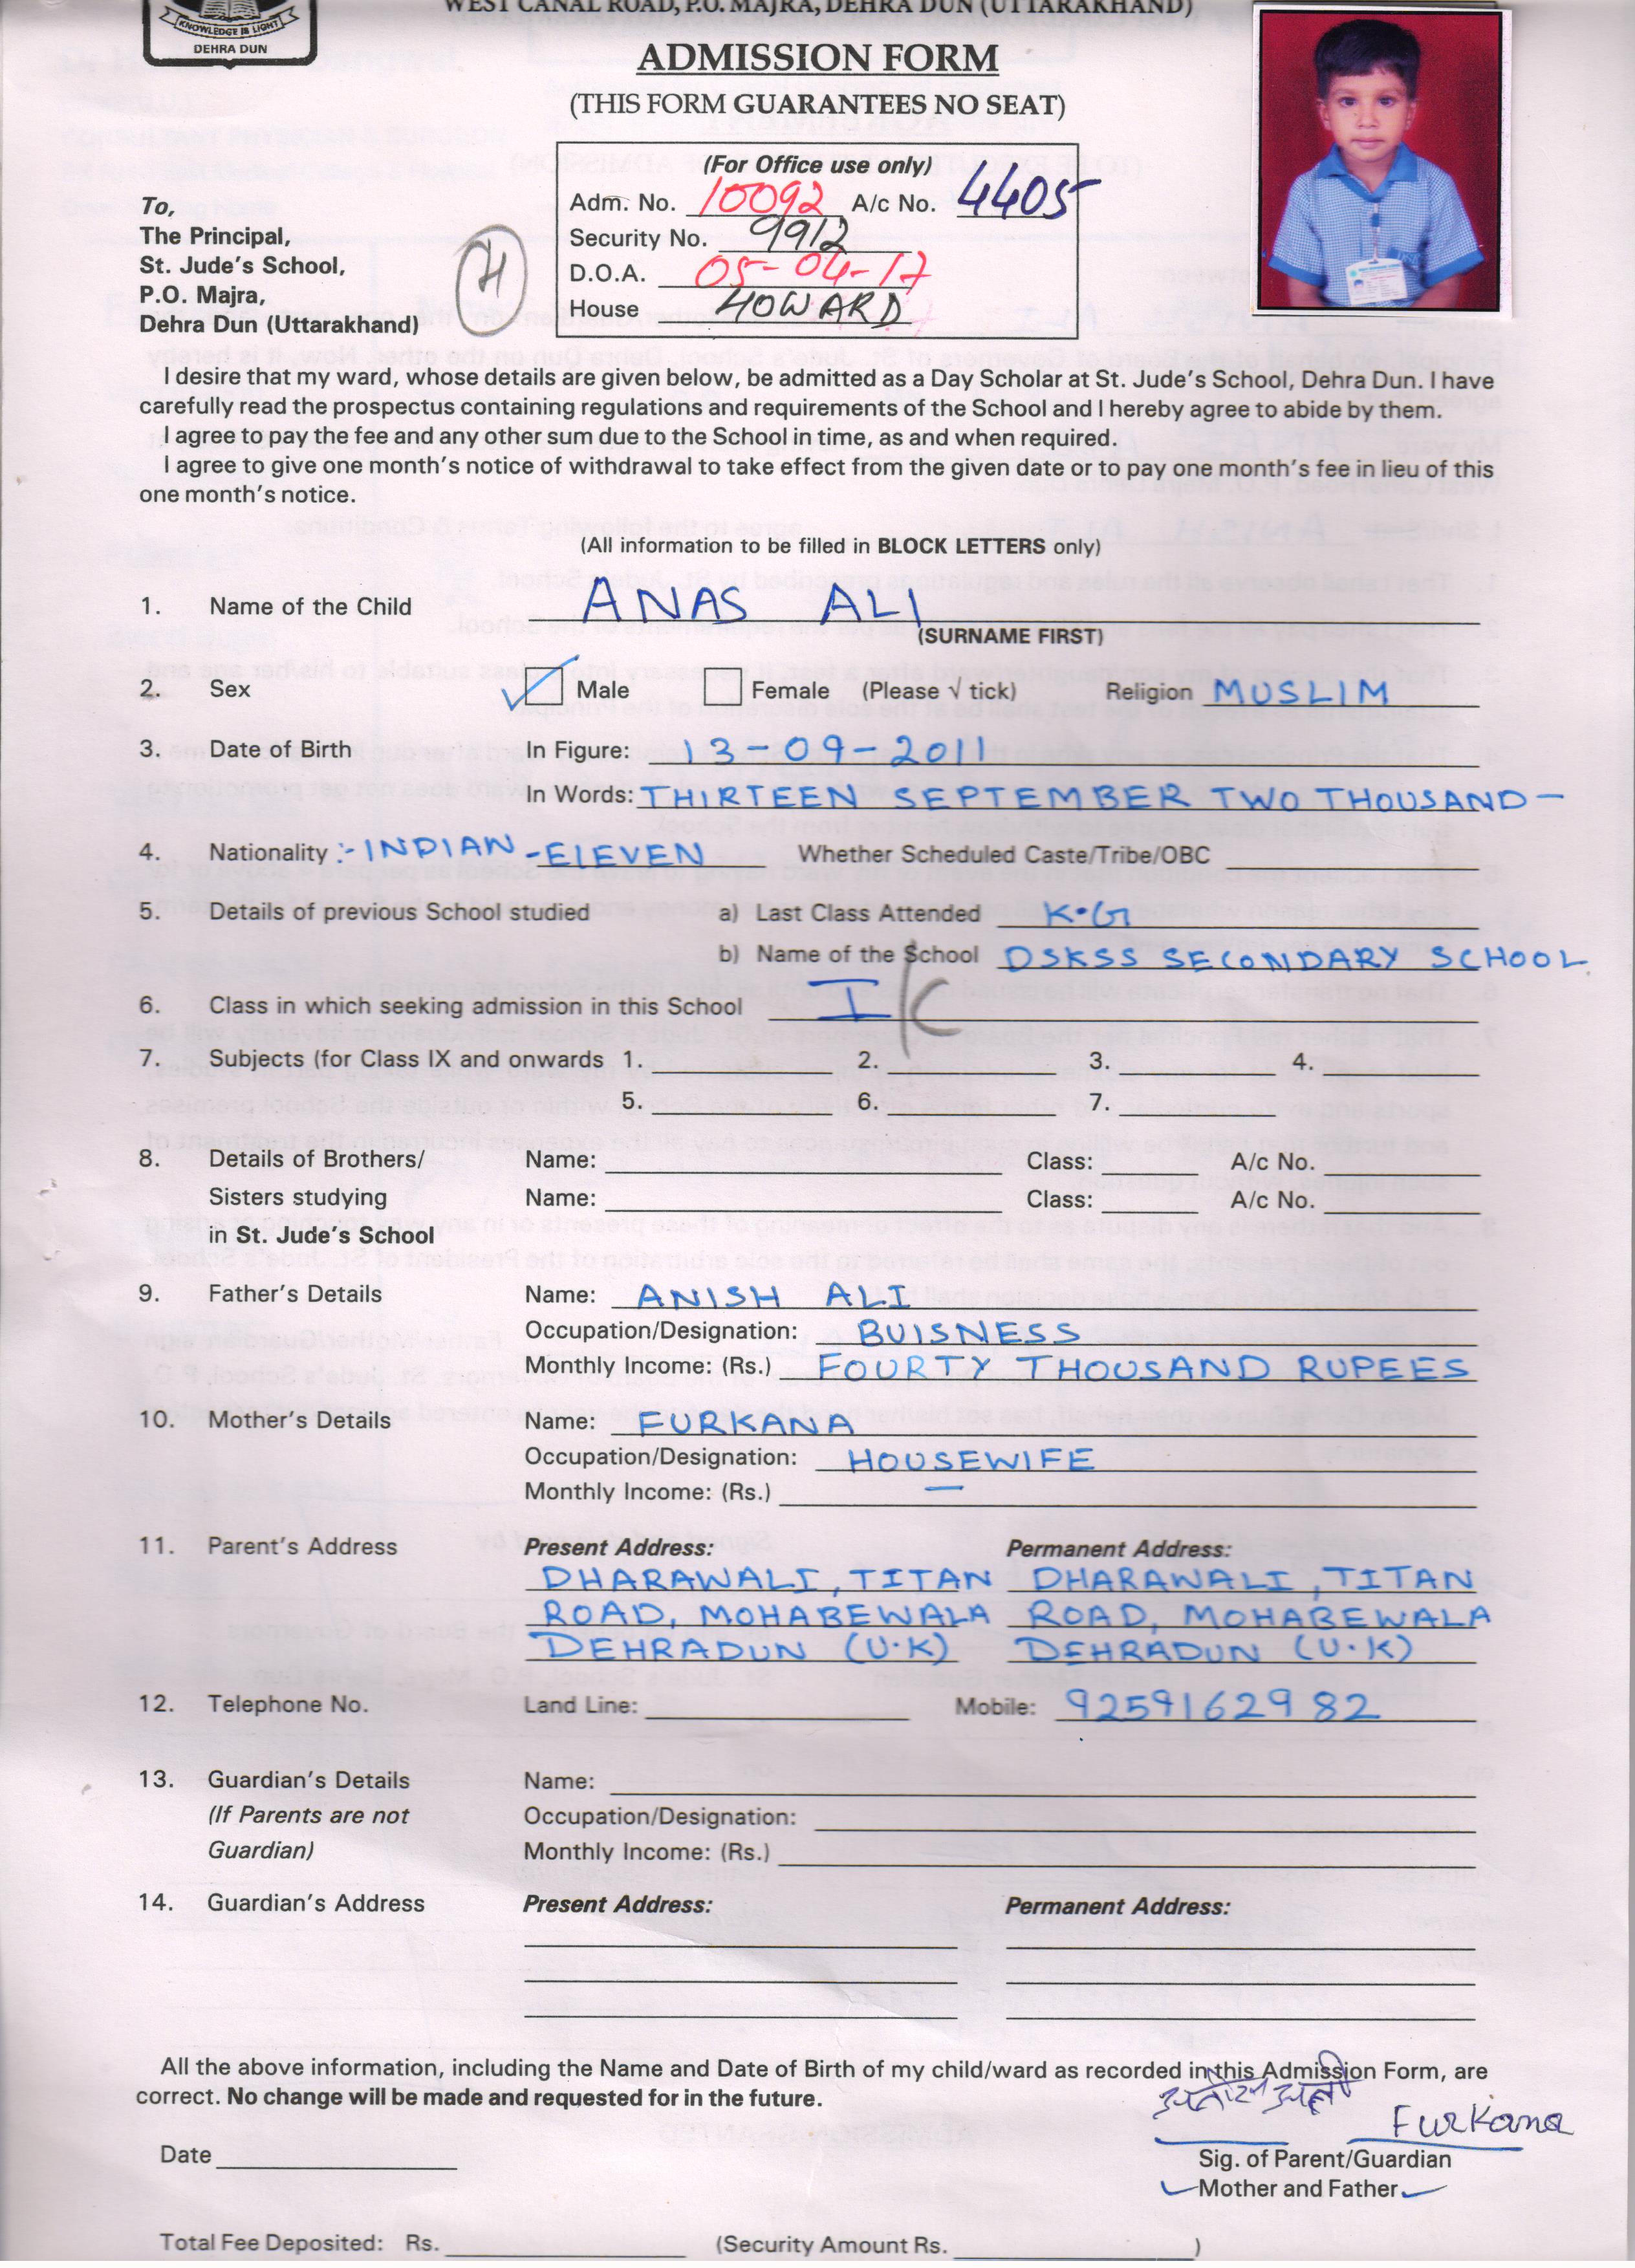 WEST CANAL ROAD, P.O. MAJRA, DEHRA DUN (UTTARAKHAND)
KNOWLEDGE IS LIGHT
DEHRA DUN
ADMISSION FORM
(THIS FORM GUARANTEES NO SEAT)
(For Office use only)
Adm. No. 10092 A/c No. 4405
Security No. 9912
D.O.A. 05-04-17
House HOWARD
H
To,
The Principal,
St. Jude's School,
P.O. Majra,
Dehra Dun (Uttarakhand)
I desire that my ward, whose details are given below, be admitted as a Day Scholar at St. Jude's School, Dehra Dun. I have
carefully read the prospectus containing regulations and requirements of the School and I hereby agree to abide by them.
I agree to pay the fee and any other sum due to the School in time, as and when required.
I agree to give one month's notice of withdrawal to take effect from the given date or to pay one month's fee in lieu of this
one month's notice.
(All information to be filled in BLOCK LETTERS only)
1. Name of the Child ANAS ALI
(SURNAME FIRST)
2. Sex ✓ Male Female (Please √ tick) Religion MUSLIM
3. Date of Birth In Figure: 13-09-2011
In Words: THIRTEEN SEPTEMBER TWO THOUSAND -
4. Nationality :- INDIAN - ELEVEN Whether Scheduled Caste/Tribe/OBC
5. Details of previous School studied a) Last Class Attended K.G
b) Name of the School DSKSS SECONDARY SCHOOL
6. Class in which seeking admission in this School I K
7. Subjects (for Class IX and onwards 1. 2. 3. 4.
5. 6. 7.
8. Details of Brothers/ Name: Class: A/c No.
Sisters studying Name: Class: A/c No.
in St. Jude's School
9. Father's Details Name: ANISH ALI
Occupation/Designation: BUISNESS
Monthly Income: (Rs.) FOURTY THOUSAND RUPEES
10. Mother's Details Name: FURKANA
Occupation/Designation: HOUSEWIFE
Monthly Income: (Rs.) —
11. Parent's Address Present Address: Permanent Address:
DHARAWALI, TITAN DHARAWALI, TITAN
ROAD, MOHABEWALA ROAD, MOHABEWALA
DEHRADUN (U.K) DEHRADUN (U.K)
12. Telephone No. Land Line: Mobile: 9259162982
13. Guardian's Details Name:
(If Parents are not Occupation/Designation:
Guardian) Monthly Income: (Rs.)
14. Guardian's Address Present Address: Permanent Address:
All the above information, including the Name and Date of Birth of my child/ward as recorded in this Admission Form, are
correct. No change will be made and requested for in the future.
Furkana
Date
Sig. of Parent/Guardian
Mother and Father
Total Fee Deposited: Rs. (Security Amount Rs. )